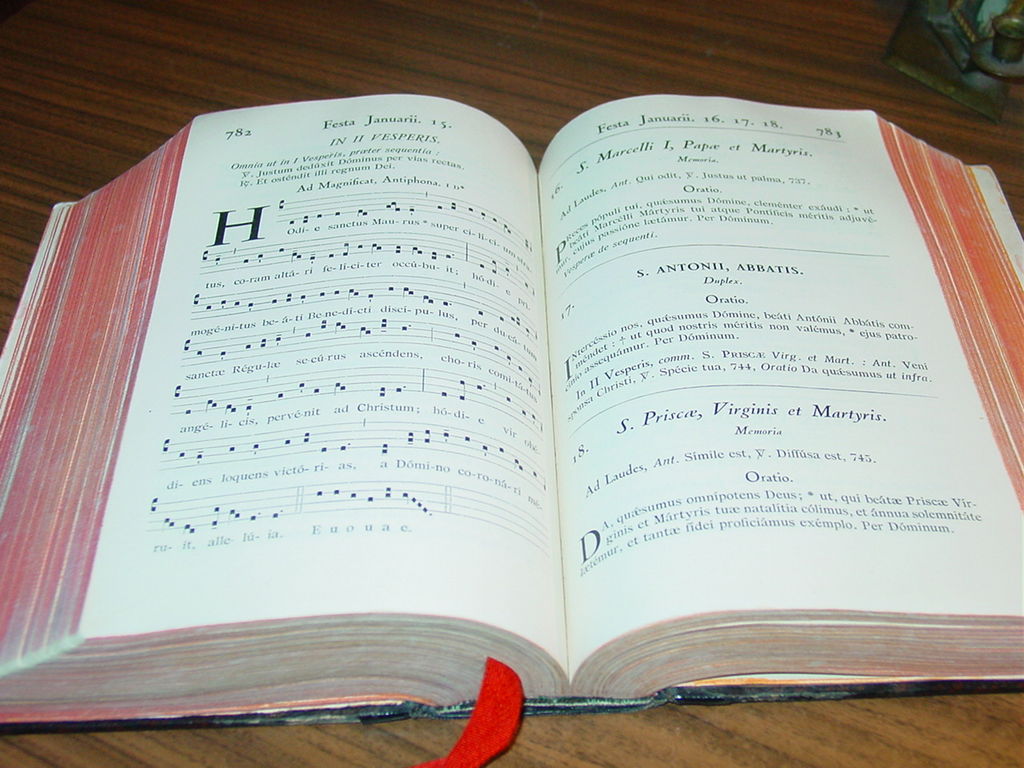 782
Festa Januarii. 15.
IN II VESPERIS.
Omnia ut in I Vesperis, præter sequentia :
℣. Justum dedúxit Dóminus per vias rectas.
℟. Et osténdit illi regnum Dei.
Ad Magnificat, Antiphona. 1 D
HOdi- e sanctus Mau- rus * super ci- li- ci- um stra-
tus, co-ram altá- ri fe-lí-ci-ter occú-bu- it ; hó-di- e pri-
mogé-ni-tus be- á- ti Be-ne-dí-cti discí- pu- lus, per ducá-tum
sanctæ Régu-læ se-cú-rus ascéndens, cho-ris comi-tá-tus
angé- li- cis, pervé-nit ad Christum ; hó-di- e vir obé-
di- ens loquens victó- ri- as, a Dómi-no co-ro-ná- ri mé-
ru- it, alle- lú- ia. E u o u a e.
Festa Januarii. 16. 17. 18.
783
S. Marcelli I, Papæ et Martyris.
Memoria.
16.
Ad Laudes, Ant. Qui odit, ℣. Justus ut palma, 737.
Oratio.
PReces pópuli tui, quǽsumus Dómine, cleménter exáudi : * ut
beáti Marcélli Mártyris tui atque Pontíficis méritis adjuvé-
mur, cujus passióne lætámur. Per Dóminum.
Vesperæ de sequenti.
S. ANTONII, ABBATIS.
Duplex.
17.
Oratio.
INtercéssio nos, quǽsumus Dómine, beáti Antónii Abbátis com-
méndet : ☩ ut quod nostris méritis non valémus, * ejus patro-
cínio assequámur. Per Dóminum.
In II Vesperis, comm. S. PRISCÆ Virg. et Mart. : Ant. Veni
sponsa Christi, ℣. Spécie tua, 744, Oratio Da quǽsumus ut infra.
S. Priscæ, Virginis et Martyris.
Memoria
18.
Ad Laudes, Ant. Símile est, ℣. Diffúsa est, 745.
Oratio.
DA, quǽsumus omnípotens Deus ; * ut, qui beátæ Priscæ Vír-
ginis et Mártyris tuæ natalítia cólimus, et ánnua solemnitáte
lætémur, et tantæ fídei proficiámus exémplo. Per Dóminum.